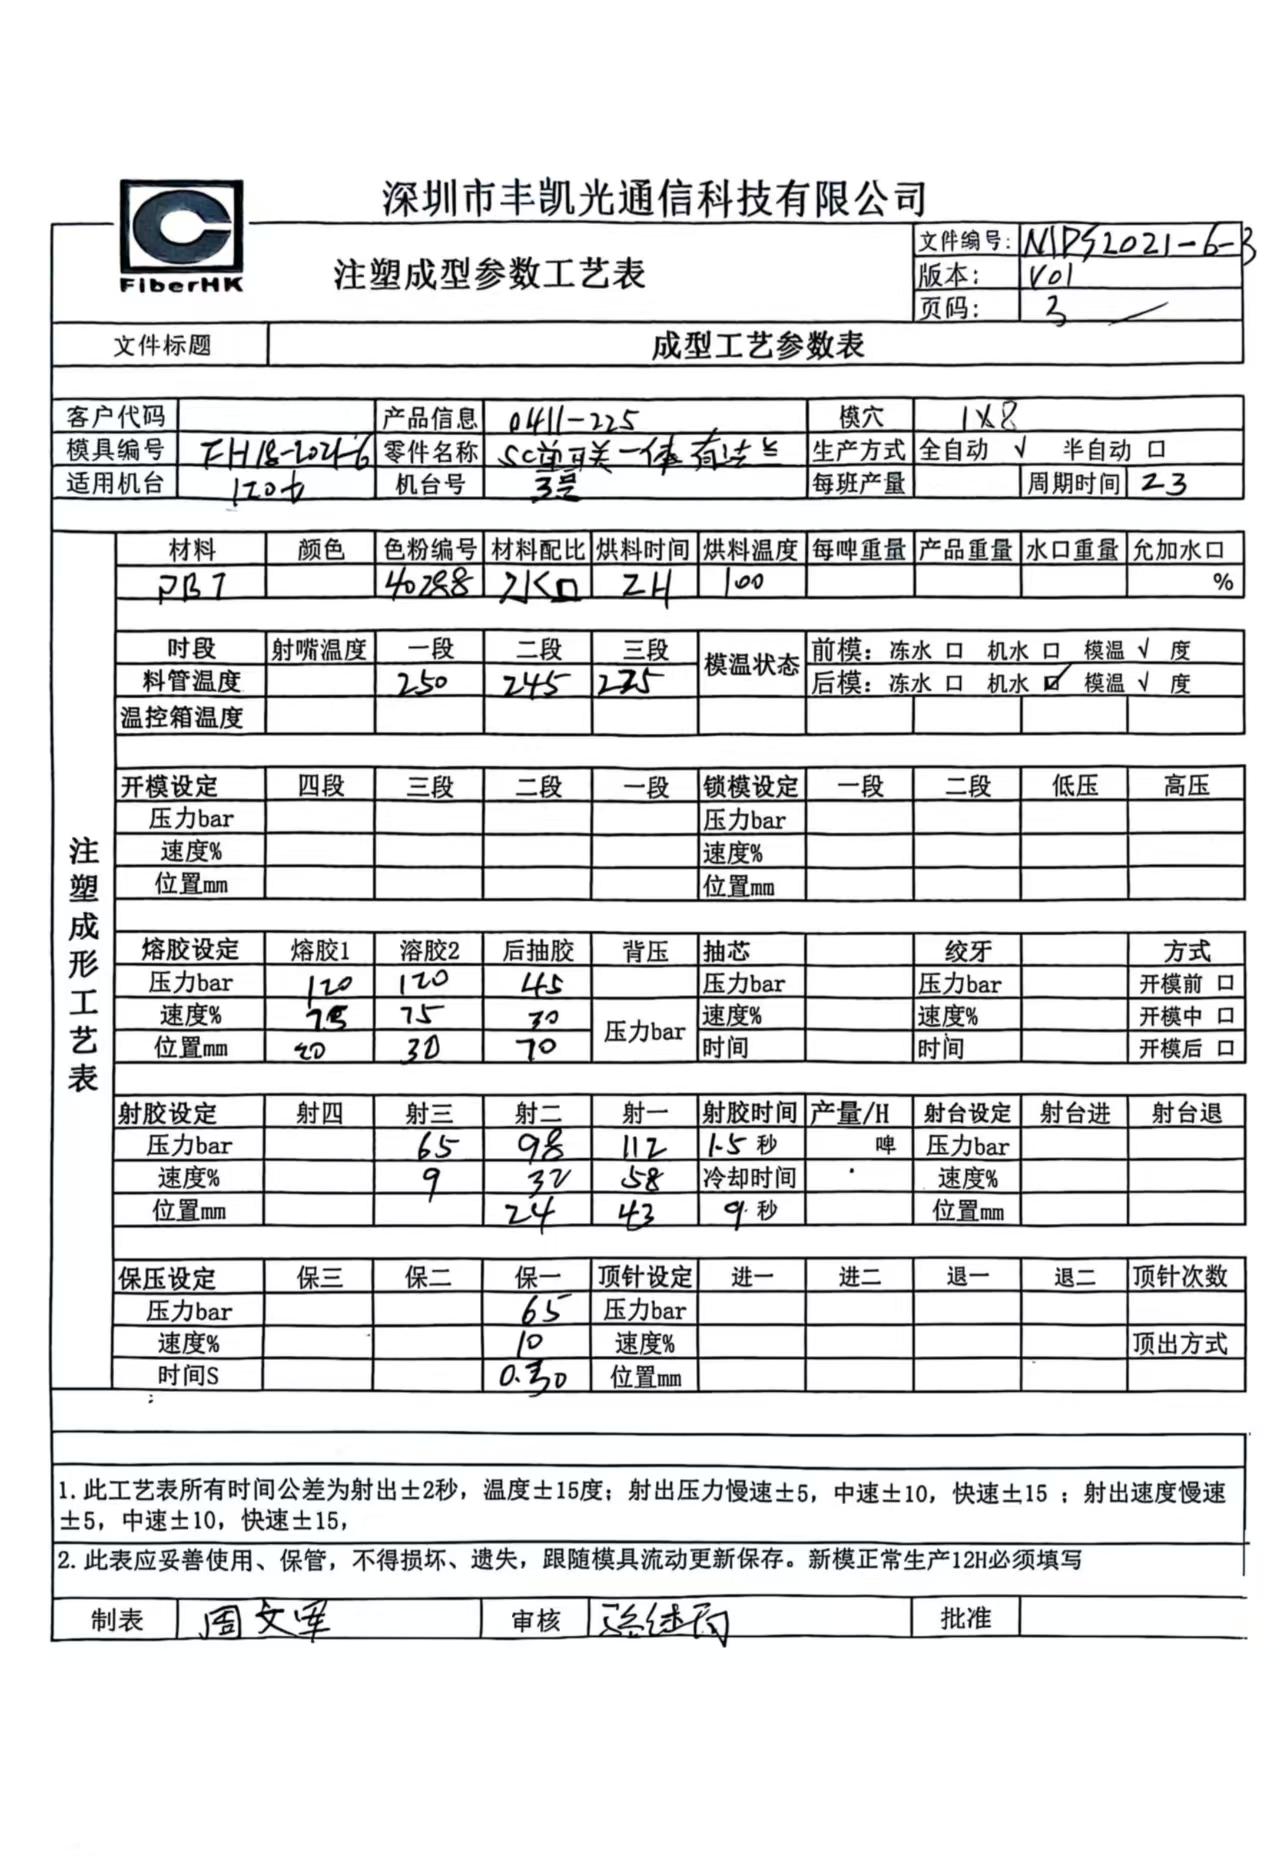 深圳市丰凯光通信科技有限公司
FiberHK
注塑成型参数工艺表
文件编号: NIPS2021-6-3
版本: V01
页码: 3
文件标题 成型工艺参数表
客户代码 产品信息 0411-225 模穴 1X8
模具编号 FH18-2021-6 零件名称 SC单可关一体有法兰 生产方式 全自动 √ 半自动 口
适用机台 120 机台号 3号 每班产量 周期时间 23
注塑成形工艺表
材料 颜色 色粉编号 材料配比 烘料时间 烘料温度 每啤重量 产品重量 水口重量 允加水口
PBT 40288 水口 2H 100 %
时段 射嘴温度 一段 二段 三段 模温状态 前模: 冻水 口 机水 口 模温 √ 度
料管温度 250 245 235 后模: 冻水 口 机水 口 模温 √ 度
温控箱温度
开模设定 四段 三段 二段 一段 锁模设定 一段 二段 低压 高压
压力bar 压力bar
速度% 速度%
位置mm 位置mm
熔胶设定 熔胶1 溶胶2 后抽胶 背压 抽芯 绞牙 方式
压力bar 120 120 45 压力bar 压力bar 开模前 口
速度% 75 75 30 压力bar 速度% 速度% 开模中 口
位置mm 20 30 70 时间 时间 开模后 口
射胶设定 射四 射三 射二 射一 射胶时间 产量/H 射台设定 射台进 射台退
压力bar 65 98 112 1.5 秒 啤 压力bar
速度% 9 32 58 冷却时间 速度%
位置mm 24 43 9. 秒 位置mm
保压设定 保三 保二 保一 顶针设定 进一 进二 退一 退二 顶针次数
压力bar 65 压力bar
速度% 10 速度% 顶出方式
时间S 0.30 位置mm
1.此工艺表所有时间公差为射出±2秒，温度±15度；射出压力慢速±5，中速±10，快速±15 ；射出速度慢速
±5，中速±10，快速±15，
2.此表应妥善使用、保管，不得损坏、遗失，跟随模具流动更新保存。新模正常生产12H必须填写
制表 周文军 审核 批准